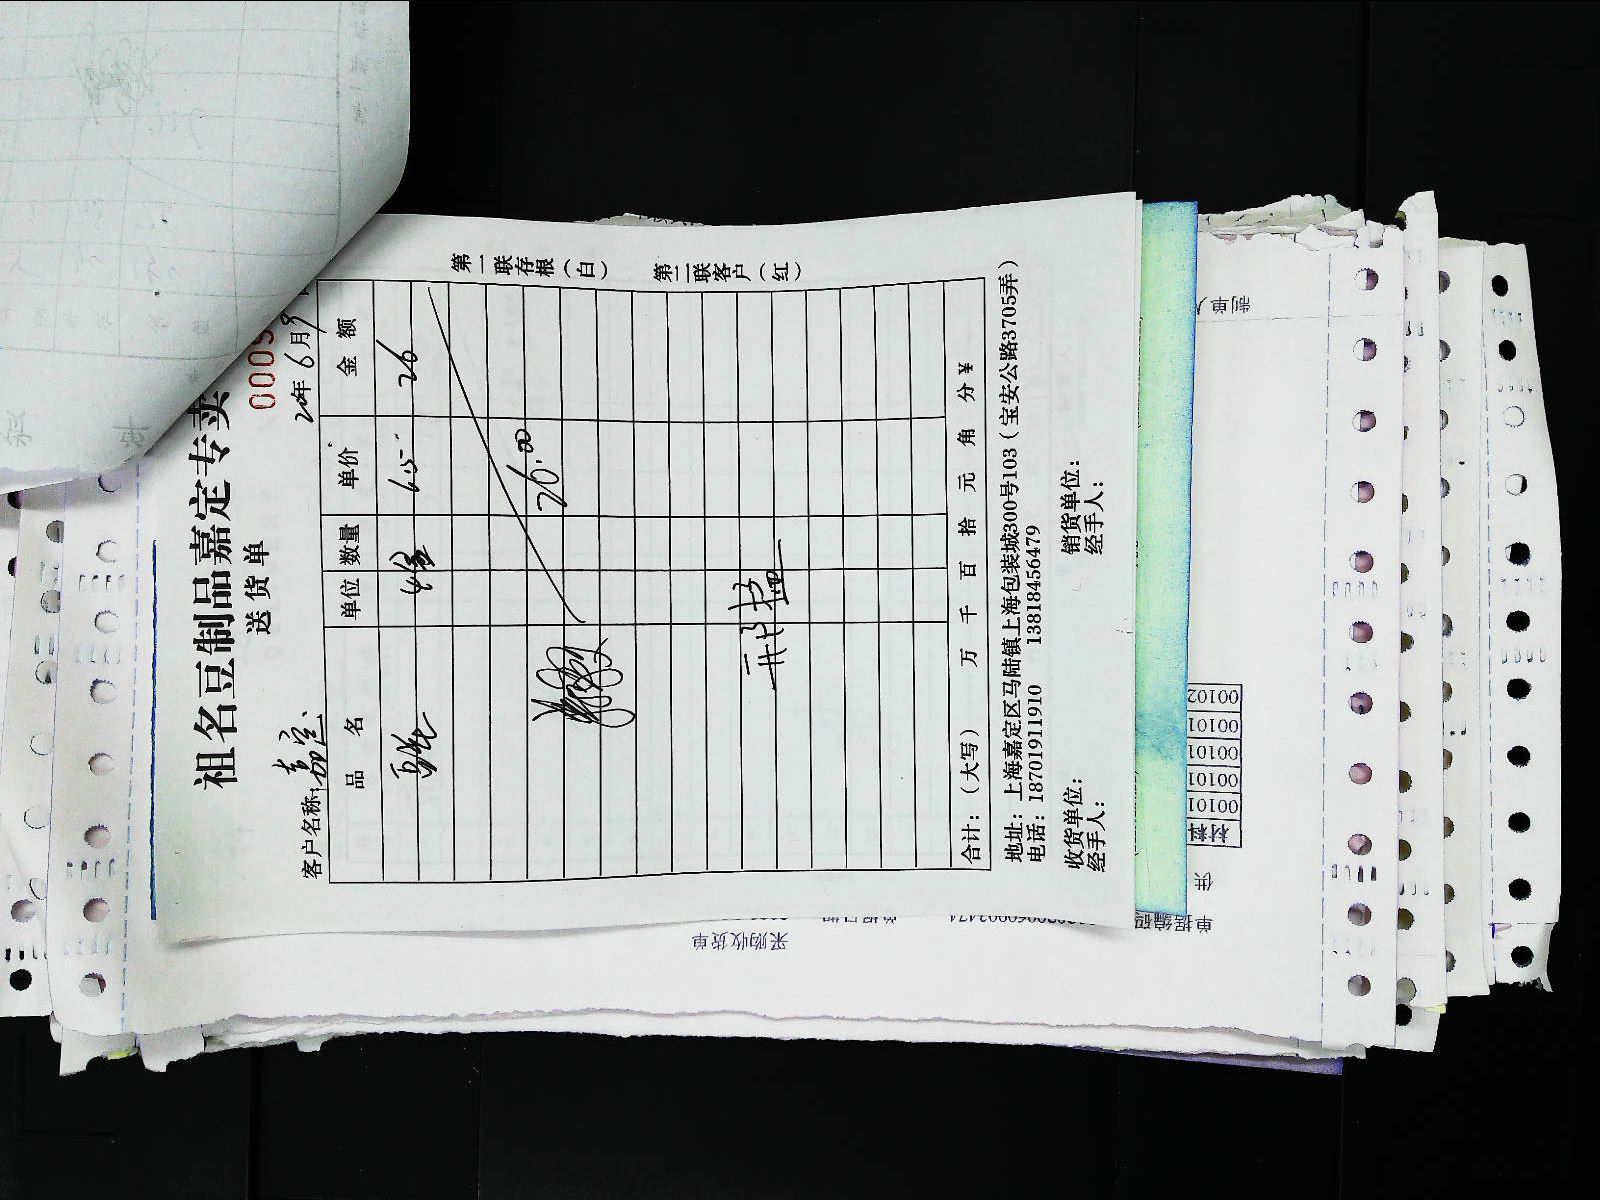 祖名豆制品嘉定专卖
送货单
0009
客户名称:嘉定
20年6月9
品名 单位 数量 单价 金额
4盒 6.5 26
26.00
合计:(大写) 万 千 百 拾 元 角 分 ¥
地址:上海嘉定区马陆镇上海包装城300号103(宝安公路3705弄)
电话:18701911910 13818456479
收货单位: 销货单位:
经手人: 经手人:
第一联存根(白) 第二联客户(红)
制单人
材料
00101
00101
00101
00101
00102
供
单据编码
单据日期
采购收货单